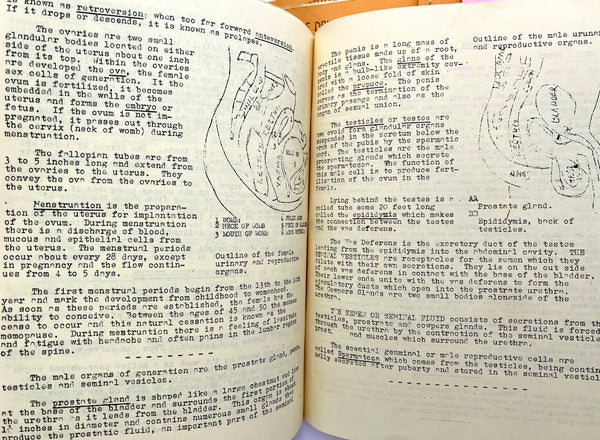 is known as retroversion; when too far forward anteversion.
If it drops or descends, it is known as prolapse.
The ovaries are two small
glandular bodies located on either
side of the uterus about one inch
from its top. Within the ovaries
are developed the ova, the female
sex cells of generation. If the
ovum is fertilized, it becomes
embedded in the walls of the
uterus and forms the embryo or
fetus. If the ovum is not im-
pregnated, it passes out through
the cervix (neck of womb) during
menstruation.
The fallopian tubes are from
3 to 5 inches long and extend from
the ovaries to the uterus. They
convey the ova from the ovaries to
the uterus.
Menstruation is the prepara-
tion of the uterus for implantation
of the ovum. During menstruation
there is a discharge of blood,
mucous and epithelial cells from
the uterus. The menstrual periods
occur about every 28 days, except
in pregnancy and the flow contin-
ues from 4 to 5 days.
1 WOMB
2 NECK OF WOMB
3 MOUTH OF WOMB
Outline of the female
urinary and reproductive
organs.
The first menstrual periods begin from the 13th to the 16th
year and mark the development from childhood to womanhood.
As soon as these periods are established, the female has the
ability to conceive. Between the ages of 45 and 50 the menses
cease to occur and this natural cessation is known as the
menopause. During menstruation there is a feeling of lassitude
and fatigue with headache and often pains in the lumbar region
of the spine.
The male organs of generation are the prostate gland, penis,
testicles and seminal vesicles.
The prostate gland is shaped like a large chestnut and lies
at the base of the bladder and surrounds the first portion of
the urethra as it leads from the bladder. This organ is about
1½ inches in diameter and contains numerous small glands that
produce the prostatic fluid, an important part of the seminal
The penis is a long mass of
erectile tissue made up of a root,
body and glans. The glans of the
penis is a bulk-like extremity cov-
ered with a loose fold of skin
called the prepuce. The penis
serves as the termination of the
urinary passage and also as the
organ of sexual union.
The testicles or testes are
two ovoid form glandular organs
suspended in the scrotum below the
arch of the pubis by the spermatic
cord. The testicles are the male
procreating glands which secrete
the spermatozoa. The function of
this male cell is to produce fertil-
isation of the ovum in the
female.
Outline of the male urinary
and reproductive organs.
BLADDER
Lying behind the testes is a
coiled tube some 20 feet long
called the epididymis which makes
the connection between the testes
and the vas deferens.
Prostate gland.
Epididymis, back of
testicles.
The Vas Deferens is the excretory duct of the testes
leading from the epididymis into the abdominal cavity. THE
SEMINAL VESICLES are receptacles for the semen which they
dilute with their own secretions. They lie on the out side
of each vas deferens in contact with the base of the bladder.
Their lower ends unite with the vas deferens to form the
ejaculatory ducts which open into the prostrate urethra.
The Cowpers Glands are two small bodies alongside of the
urethra.
THE SEMEN OR SEMINAL FLUID consists of secretions from the
testicles, prostate and cowpers glands. This fluid is forced
through the urethra by the contraction of the seminal vesicles
and muscles which surround the urethra.
The scential germinal or male reproductive cells are
called Spermatoza which comes from the testicles, being contin-
ually secreted after puberty and stored in the seminal vesicles